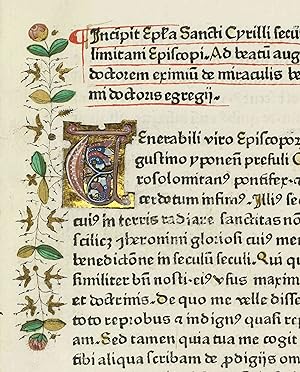 Incipit Epl̃a Sancti Cyrilli secũ
limitani Episcopi. Ad beatũ aug
doctorem eximiũ de miraculis be
mi doctoris egregij.
Venerabili viro Episcopor
gustino yponeñ presuli C
rosolomitanus pontifex⁊c
cerdotum infimꝰ. Illiꝰ se
cuiꝰ in terris radiare sanctitas nõ
scilicꝫ Jheronimi gloriosi cuiꝰ mem
benedictõne in seculũ seculi. Qui qu
similiter bñ nosti. eiꝰ vsus maxim
et doctrinis. De quo me velle disse
toto reprobus ⁊ indignꝰ quasi rep
am. Sed tamen quia tua me cogit
tibi aliqua scribam de prodigijs om